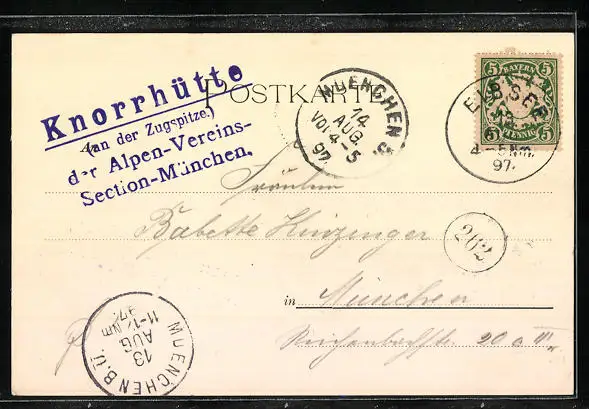 POSTKARTE
Knorrhütte
(an der Zugspitze.)
der Alpen-Vereins-
Section-München.
MUENCHEN 5.
14
AUG.
VOR 4-5
97.
BAYERN
5 5
5 5
PFENNIG
EIBSEE
4-5 Nm.
97.
Fräulein
Babette Kinzinger
262
in München
20 a III
MUENCHEN B.Ü.
13
AUG
11-12 Nm
97